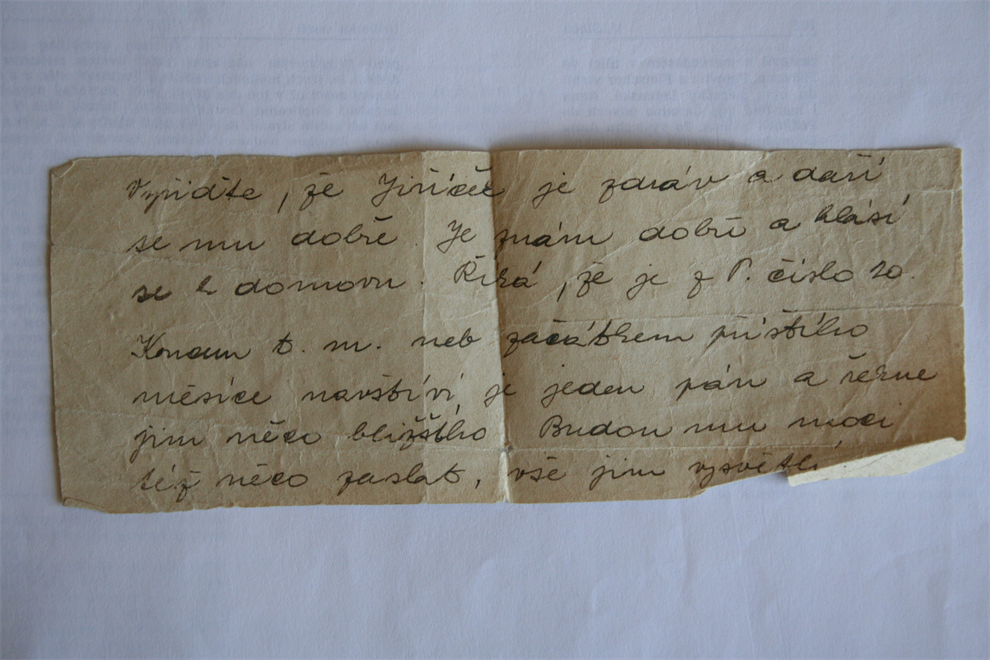 Vyřiďte, že Jiříček je zdráv a daří
se mu dobře. Je znám dobře a hlásí
se k domovu. Říká, že je z P. číslo 20.
Koncem t. m. neb začátkem příštího
měsíce navštíví je jeden pán a řekne
jim něco bližšího Budou mu moci
též něco zaslat, vše jim vysvětlí.